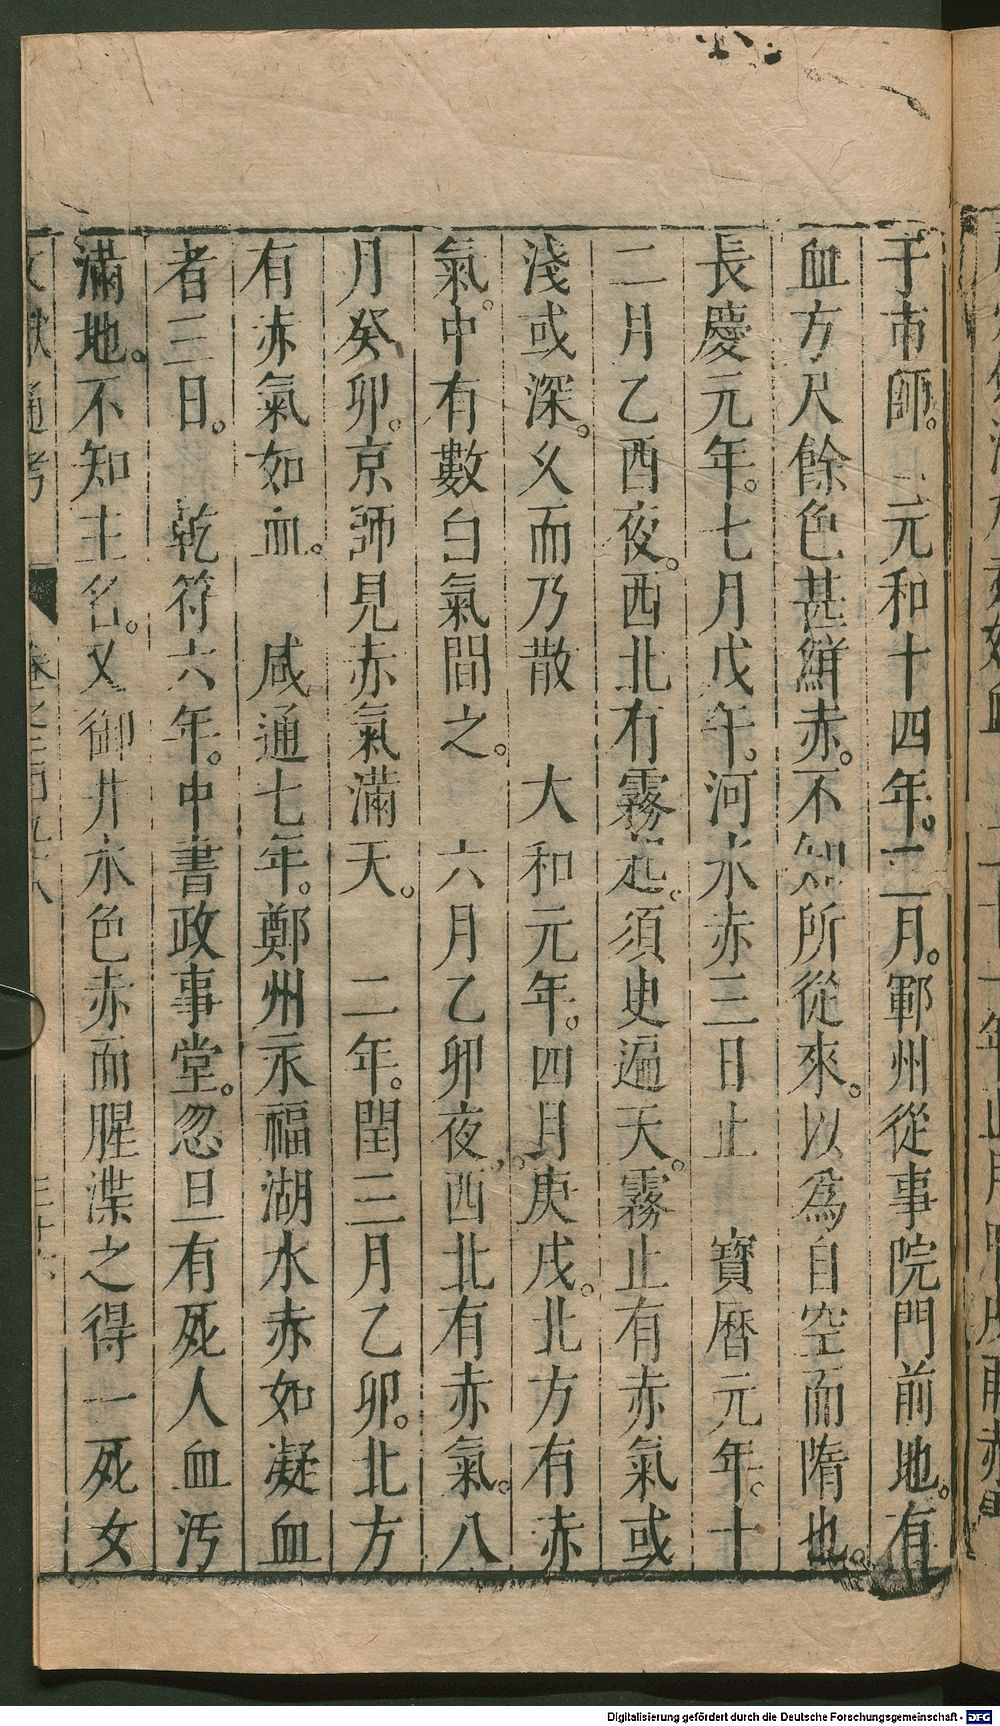 于市師。 元和十四年。二月。鄆州從事院門前地。有
血方尺餘色甚鮮赤。不知所從來。以爲自空而隋也。
長慶元年。七月戊午。河水赤三日止 寶曆元年。十
二月乙酉夜。西北有霧起。須臾遍天。霧止有赤氣或
淺或深。久而乃散 大和元年。四月庚戌。北方有赤
氣。中有數白氣間之。 六月乙卯夜。西北有赤氣。八
月癸卯。京師見赤氣滿天。 二年。閏三月乙卯。北方
有赤氣如血。 咸通七年。鄭州永福湖水赤如凝血
者三日。 乾符六年。中書政事堂。忽旦有死人血汚
滿地。不知主名。又御井水色赤而腥渫之得一死女
Digitalisierung gefördert durch die Deutsche Forschungsgemeinschaft - DFG